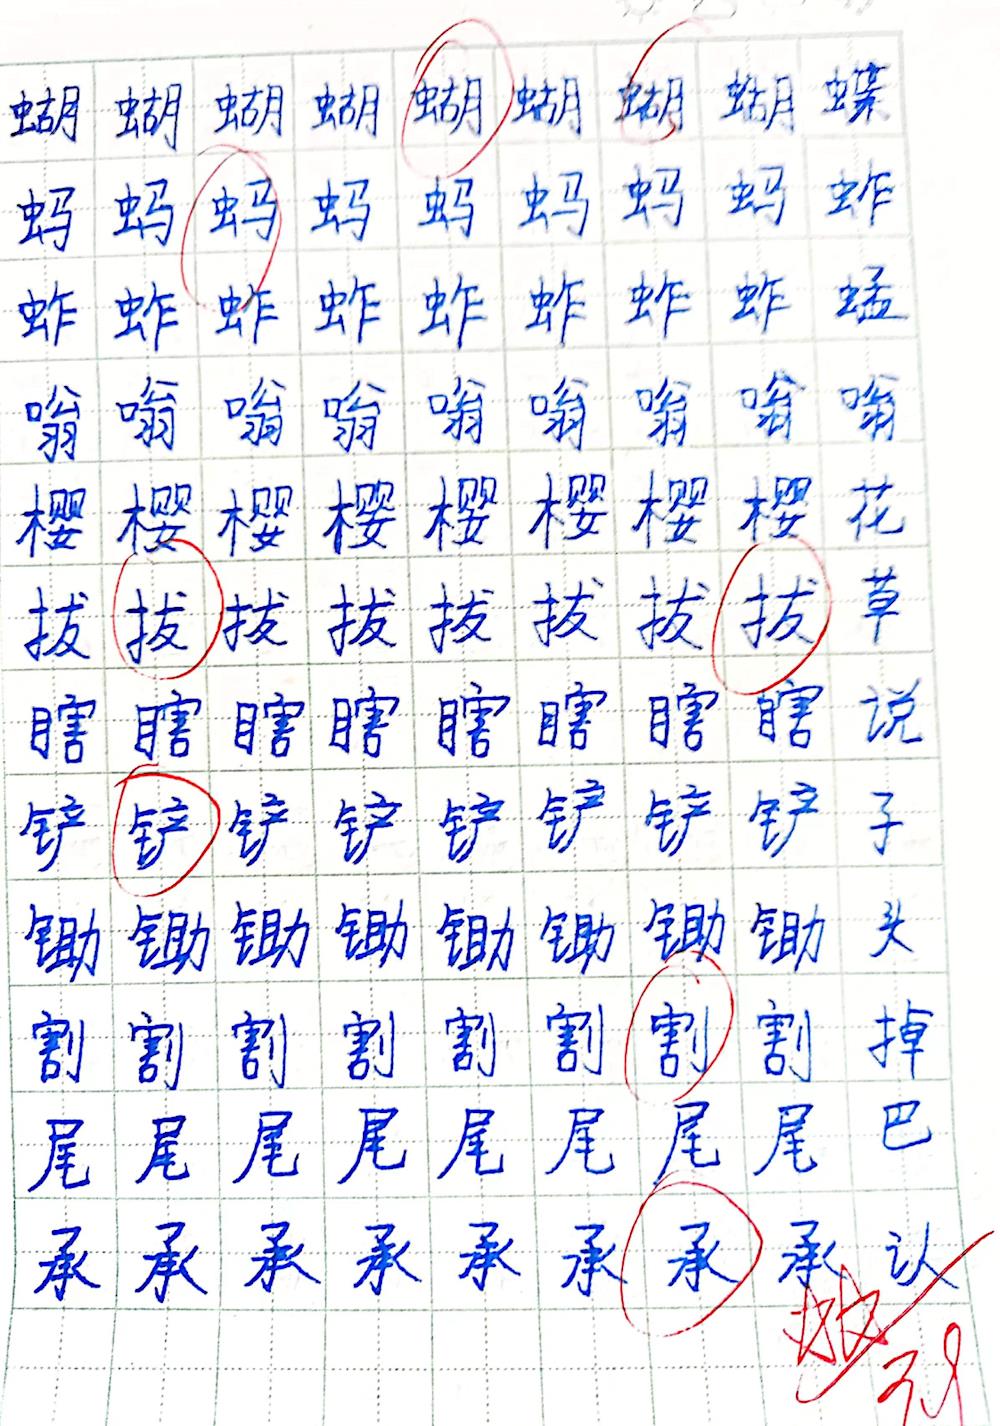 蝴蝴蝴蝴蝴蝴蝴蝴蝶
蚂蚂蚂蚂蚂蚂蚂蚂蚱
蚱蚱蚱蚱蚱蚱蚱蚱蜢
嗡嗡嗡嗡嗡嗡嗡嗡嗡
樱樱樱樱樱樱樱樱花
拔拔拔拔拔拔拔拔草
瞎瞎瞎瞎瞎瞎瞎瞎说
铲铲铲铲铲铲铲铲子
锄锄锄锄锄锄锄锄头
割割割割割割割割掉
尾尾尾尾尾尾尾尾巴
承承承承承承承承认